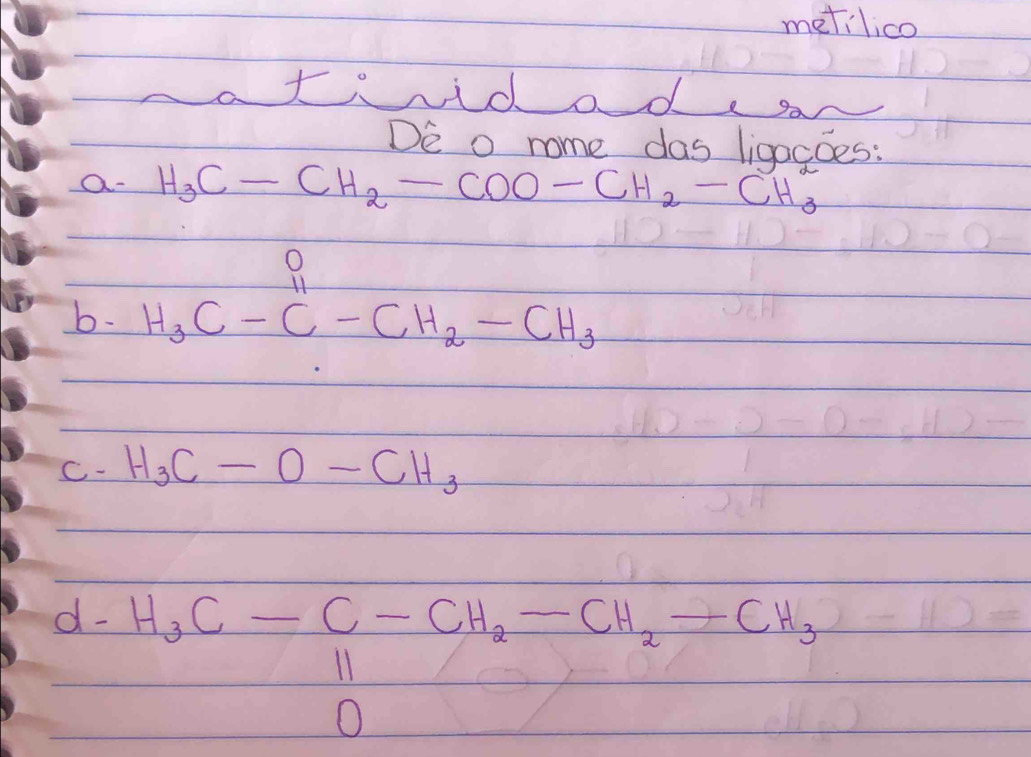 metílico
atividades
Dê o nome das ligações:
a- H₃C — CH₂ — COO — CH₂ — CH₃
O
||
b- H₃C — C — CH₂ — CH₃
c- H₃C — O — CH₃
d- H₃C — C — CH₂ — CH₂ — CH₃
||
O